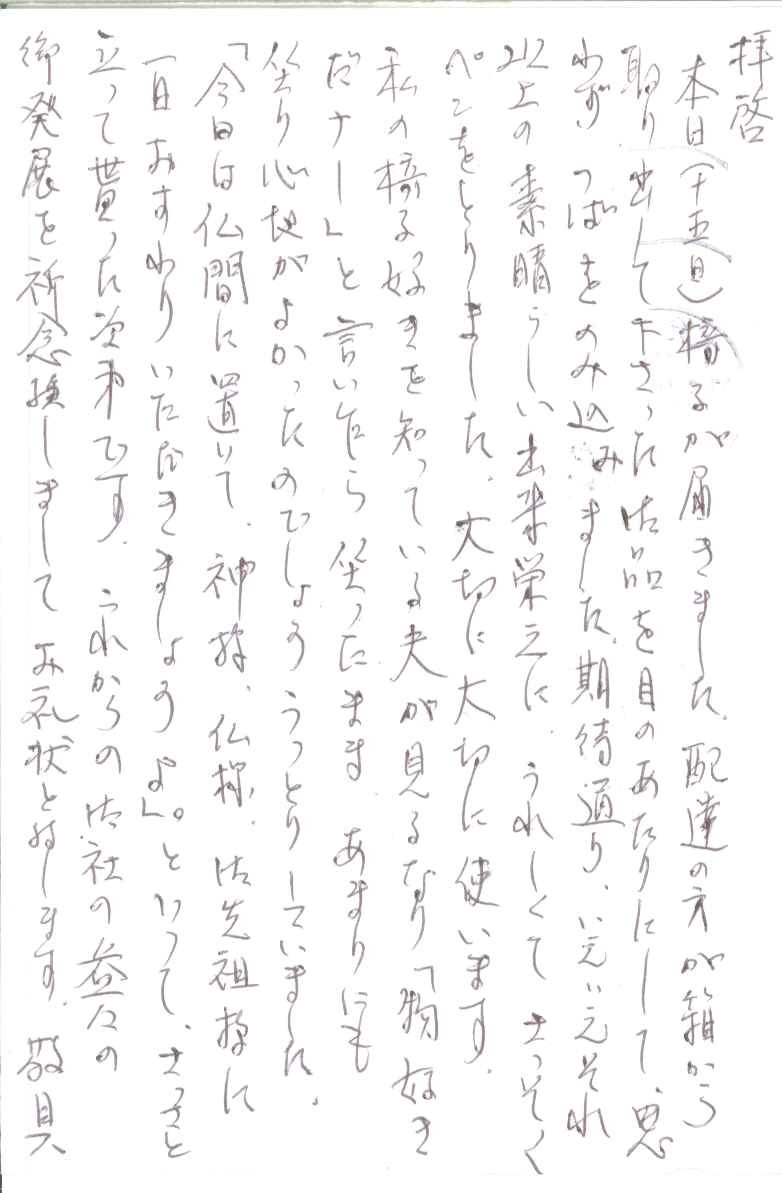 拝啓
本日(十五日)椅子が届きました。配達の方が箱から
取り出して下さった御品を目のあたりにして、思
わず つばをのみ込みました。期待通り、いえいえそれ
以上の素晴らしい出来栄えに、うれしくて さっそく
ペンをとりました。大切に大切に使います。
私の椅子好きを知っている夫が見るなり「物好き
だナー」と言い乍ら 笑ったまま あまりにも
坐り心地がよかったのでしょう うっとりしていました。
「今日は仏間に置いて、神様、仏様、御先祖様に
一日おすわりいただきましょうよ」。といって、さっさと
立って貰った次第です。これからの御社の益々の
御発展を祈念致しまして お礼状と致します。敬具